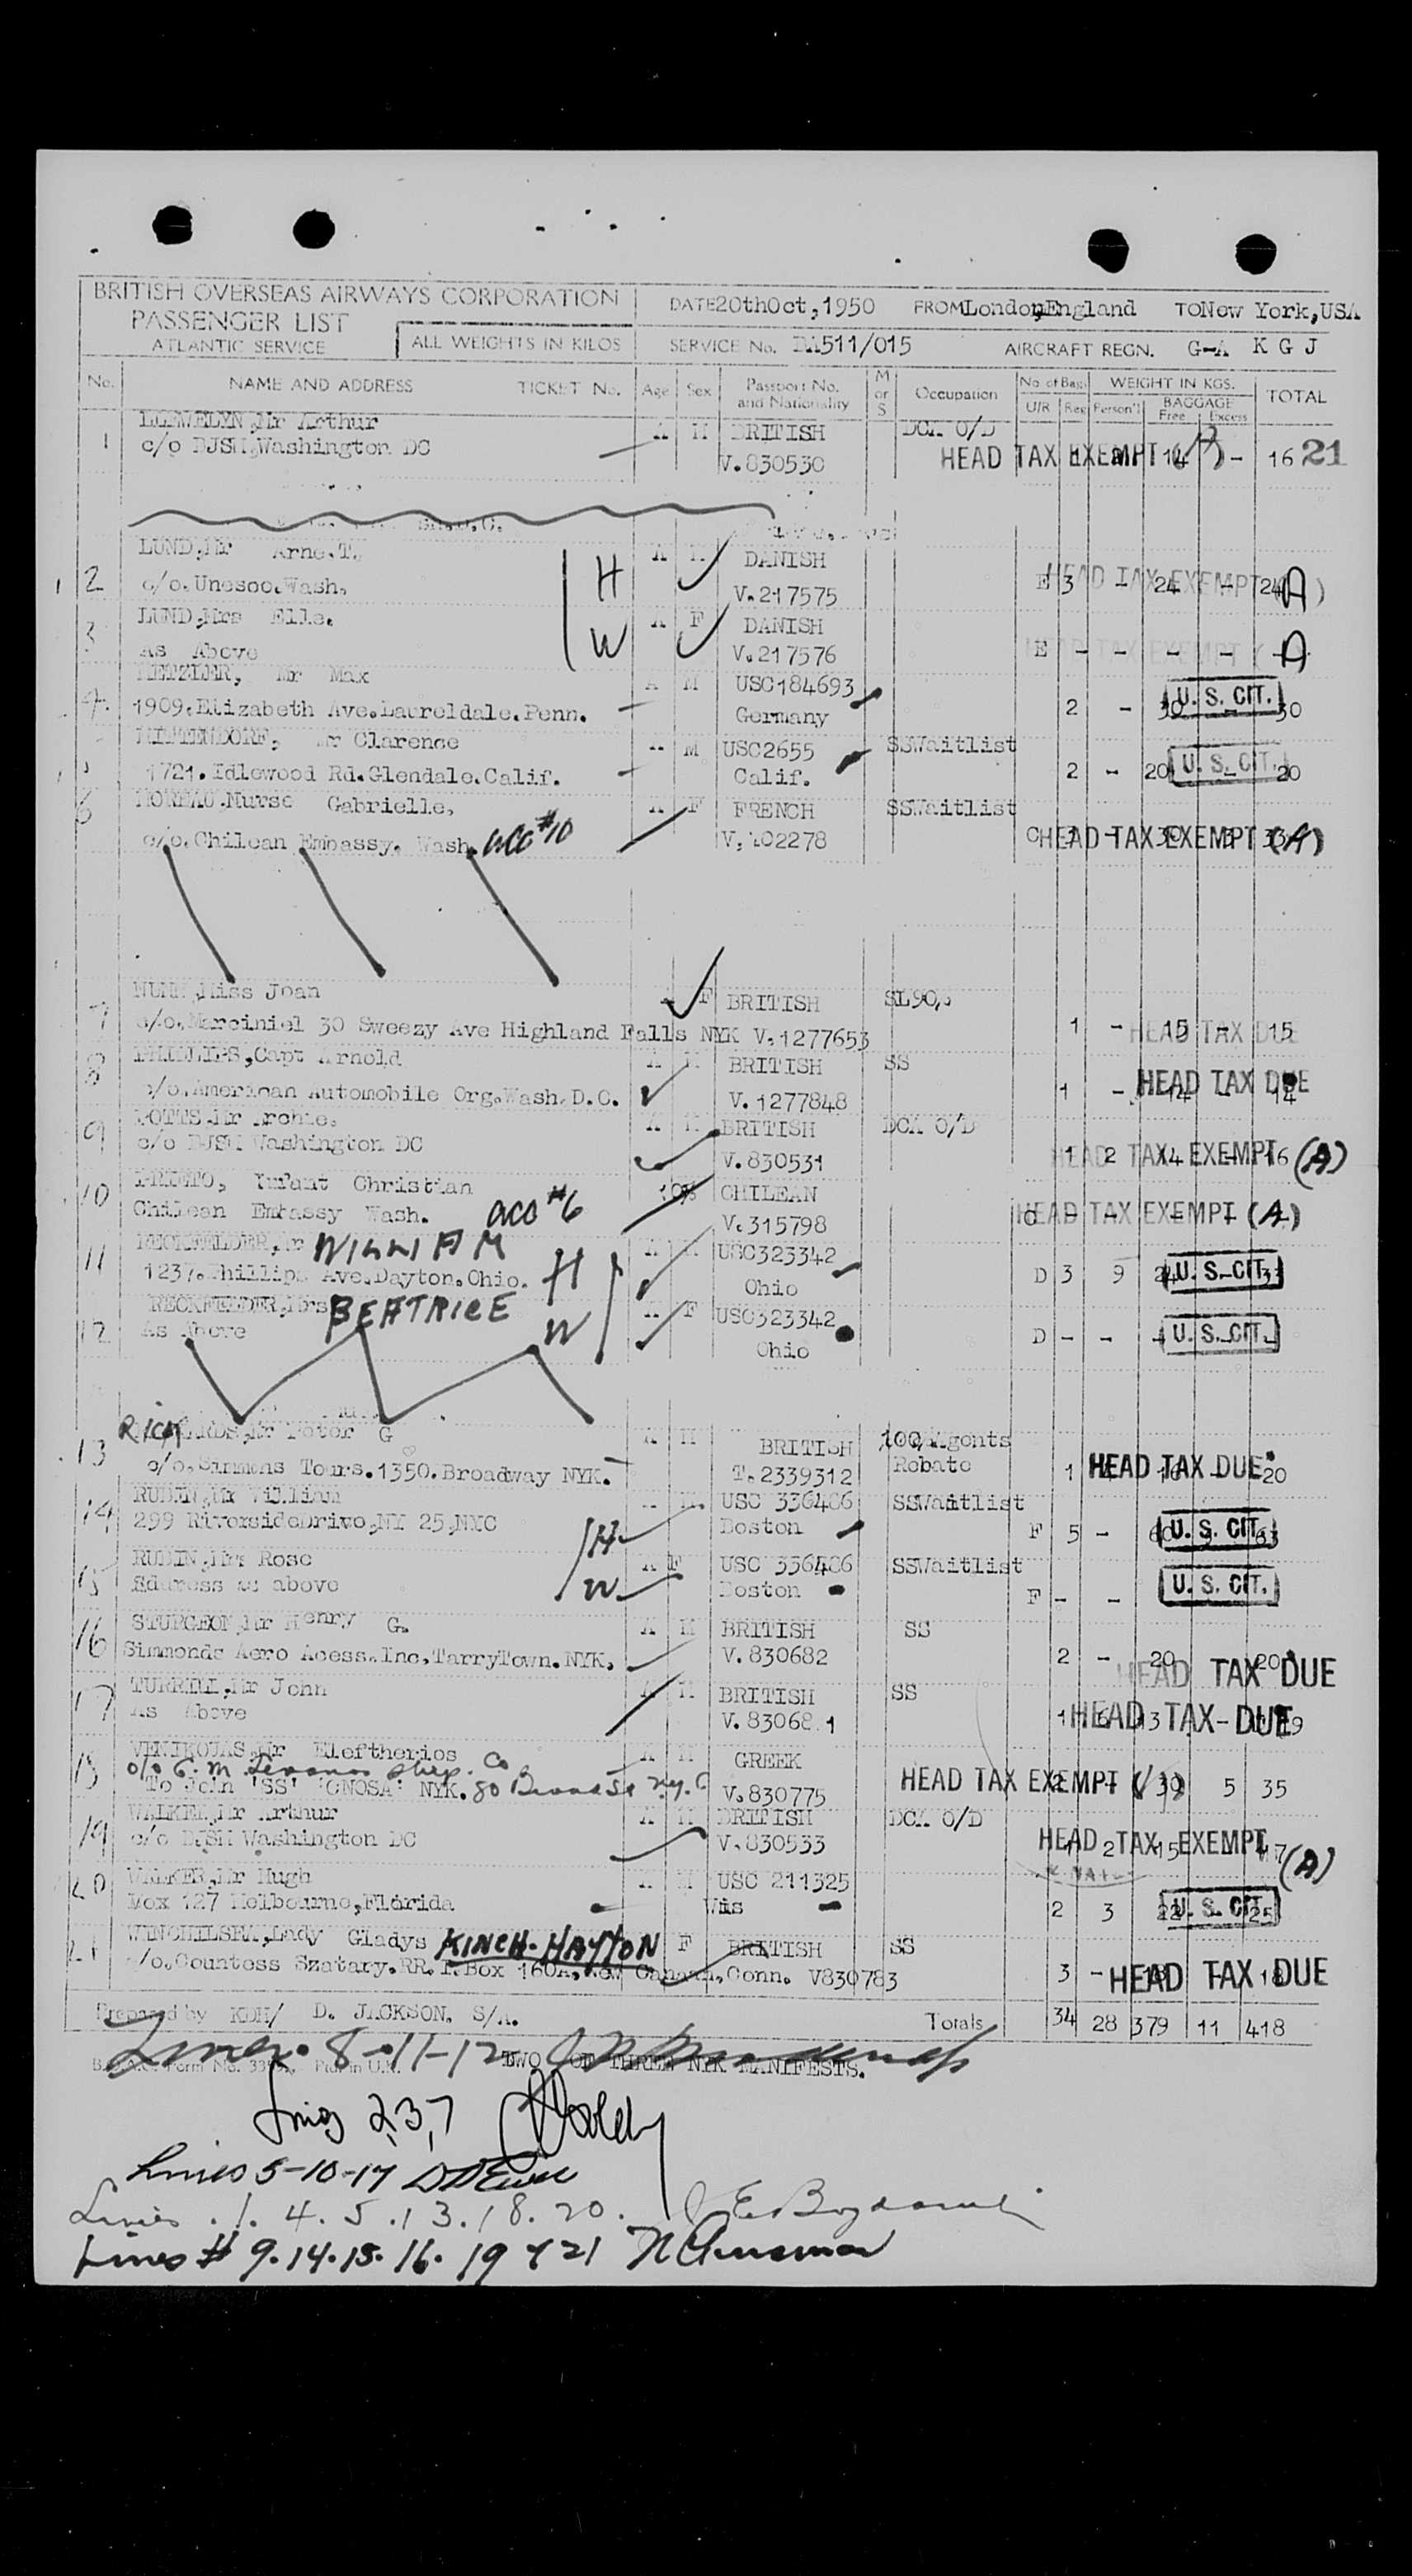 BRITISH OVERSEAS AIRWAYS CORPORATION
PASSENGER LIST
ATLANTIC SERVICE
ALL WEIGHTS IN KILOS
DATE 20thOct,1950 FROM London,England TO New York,USA
SERVICE No. BA511/015 AIRCRAFT REGN. G-A K G J
No. NAME AND ADDRESS TICKET No. Age Sex Passport No. and Nationality M or S Occupation No. of Bag. U/R Reg WEIGHT IN KGS. Person'l BAGGAGE Free Excess TOTAL
1 LLEWELYN,Mr Arthur A M BRITISH DCA O/D
c/o BJSM,Washington DC V.830530 HEAD TAX EXEMPT 14 - 16 21
LUND,Mr Arne.T. A M DANISH
2 c/o.Unesco.Wash. H V.217575 E 3 HEAD TAX EXEMPT - 24 - 24 (A)
LUND,Mrs Elle. A F DANISH
3 As Above W V.217576 E - - - - HEAD TAX EXEMPT (A)
METZLER, Mr Max A M USC184693
4 1909.Elizabeth Ave.Laureldale.Penn. Germany 2 - 30 U. S. CIT. 30
MITTENDORF, Mr Clarence A M USC2655 SSWaitlist
1721.Idlewood Rd.Glendale.Calif. Calif. 2 - 20 U. S. CIT. 20
6 MOREAU.Nurse Gabrielle, A F FRENCH SSWaitlist
c/o.Chilean Embassy. Wash. acc #10 V.102278 C HEAD TAX EXEMPT (A)
NUNN,Miss Joan F BRITISH SL90
7 c/o.Marciniel 30 Sweezy Ave Highland Falls NYK V.1277653 1 - 15 - 15 HEAD TAX DUE
PHILLIPS,Capt Arnold A M BRITISH SS
8 c/o.American Automobile Org.Wash.D.C. V.1277848 1 - 14 - 14 HEAD TAX DUE
POTTS.Mr Archie. A M BRITISH DCA O/D
9 c/o BJSM Washington DC V.830531 1 2 14 - 16 HEAD TAX EXEMPT (A)
10 PRIETO, Yufant Christian CHILEAN
Chilean Embassy Wash. acc #6 V.315798 C HEAD TAX EXEMPT (A)
RECKEFELDER,Mr WILLIAM A M USC323342
11 1237.Phillips Ave.Dayton.Ohio. H Ohio D 3 9 24 - 33 U. S. CIT.
RECKEFELDER,Mrs BEATRICE A F USC323342
12 As Above W Ohio D - - - U. S. CIT.
RICHARDS,Mr Peter G A M BRITISH 100% Agents
13 c/o.Simmons Tours.1350.Broadway NYK. T.2339312 Rebate 1 HEAD TAX DUE 16 - 20
RUBIN,Mr William A M. USC 336486 SSWaitlist
14 299 RiversideDrive,NY 25,NYC H Boston F 5 - 60 U. S. CIT. 63
RUBIN,Mrs Rose A F USC 336486 SSWaitlist
15 Address as above W Boston F - - U. S. CIT.
STURGEON,Mr Henry G. A M BRITISH SS
16 Simmonds Aero Acess.Inc,TarryTown.NYK. V.830682 2 - 20 20 HEAD TAX DUE
17 TURRILL,Mr John A M BRITISH SS
As Above V.830681 1 6 13 - 19 HEAD TAX DUE
Mr Eleftherios A M GREEK
c/o Ship. Co
18 To Join 'SS' NYK. 80 Broad St N.Y.C V.830775 HEAD TAX EXEMPT 30 5 35
WALKER,Mr Arthur A M BRITISH DCA O/D
19 c/o BJSM Washington DC V.830533 1 2 15 - 17 HEAD TAX EXEMPT (A)
20 WALKER,Mr Hugh A M USC 211325
Box 127 Melbourne,Florida Wis 2 3 22 - 25 U. S. CIT.
WINCHILSEA,Lady Gladys FINCH-HATTON F BRITISH SS
21 c/o.Countess Szatary.RR.1.Box 160A,New Canaan,Conn. V830783 3 - 18 - 18 HEAD TAX DUE
Prepared by KDH/ D. JACKSON. S/A. Totals 34 28 379 11 418
Lines. 8-11-12
TWO OF THREE NYK MANIFESTS.
Lines 2,3,7
Lines 5-10-17
Lines . 1. 4. 5. 13. 18. 20.
Lines # 9.14.15. 16. 19 & 21